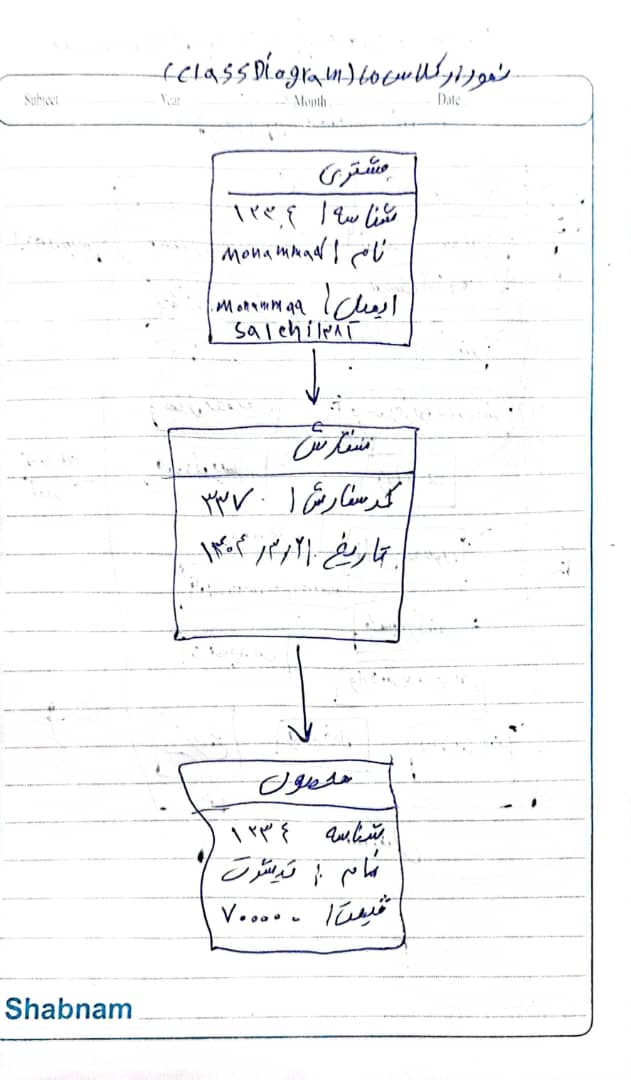 نمودار کلاس ها (Class Diagram)
Subject Year Month Date
مشتری
شناسه ۱ ۱۲۳۰۴
نام ۱ Mohammad
ایمیل ۱ Mohammad
Salehi۱۳۸۲
سفارش
کد سفارش ۱ ۳۳۷
تاریخ ۱۴۰۴/۳/۲۱
محصول
شناسه ۱۲۳۴
نام ۱ تیشرت
قیمت ۱ ۷۰۰۰۰۰
Shabnam